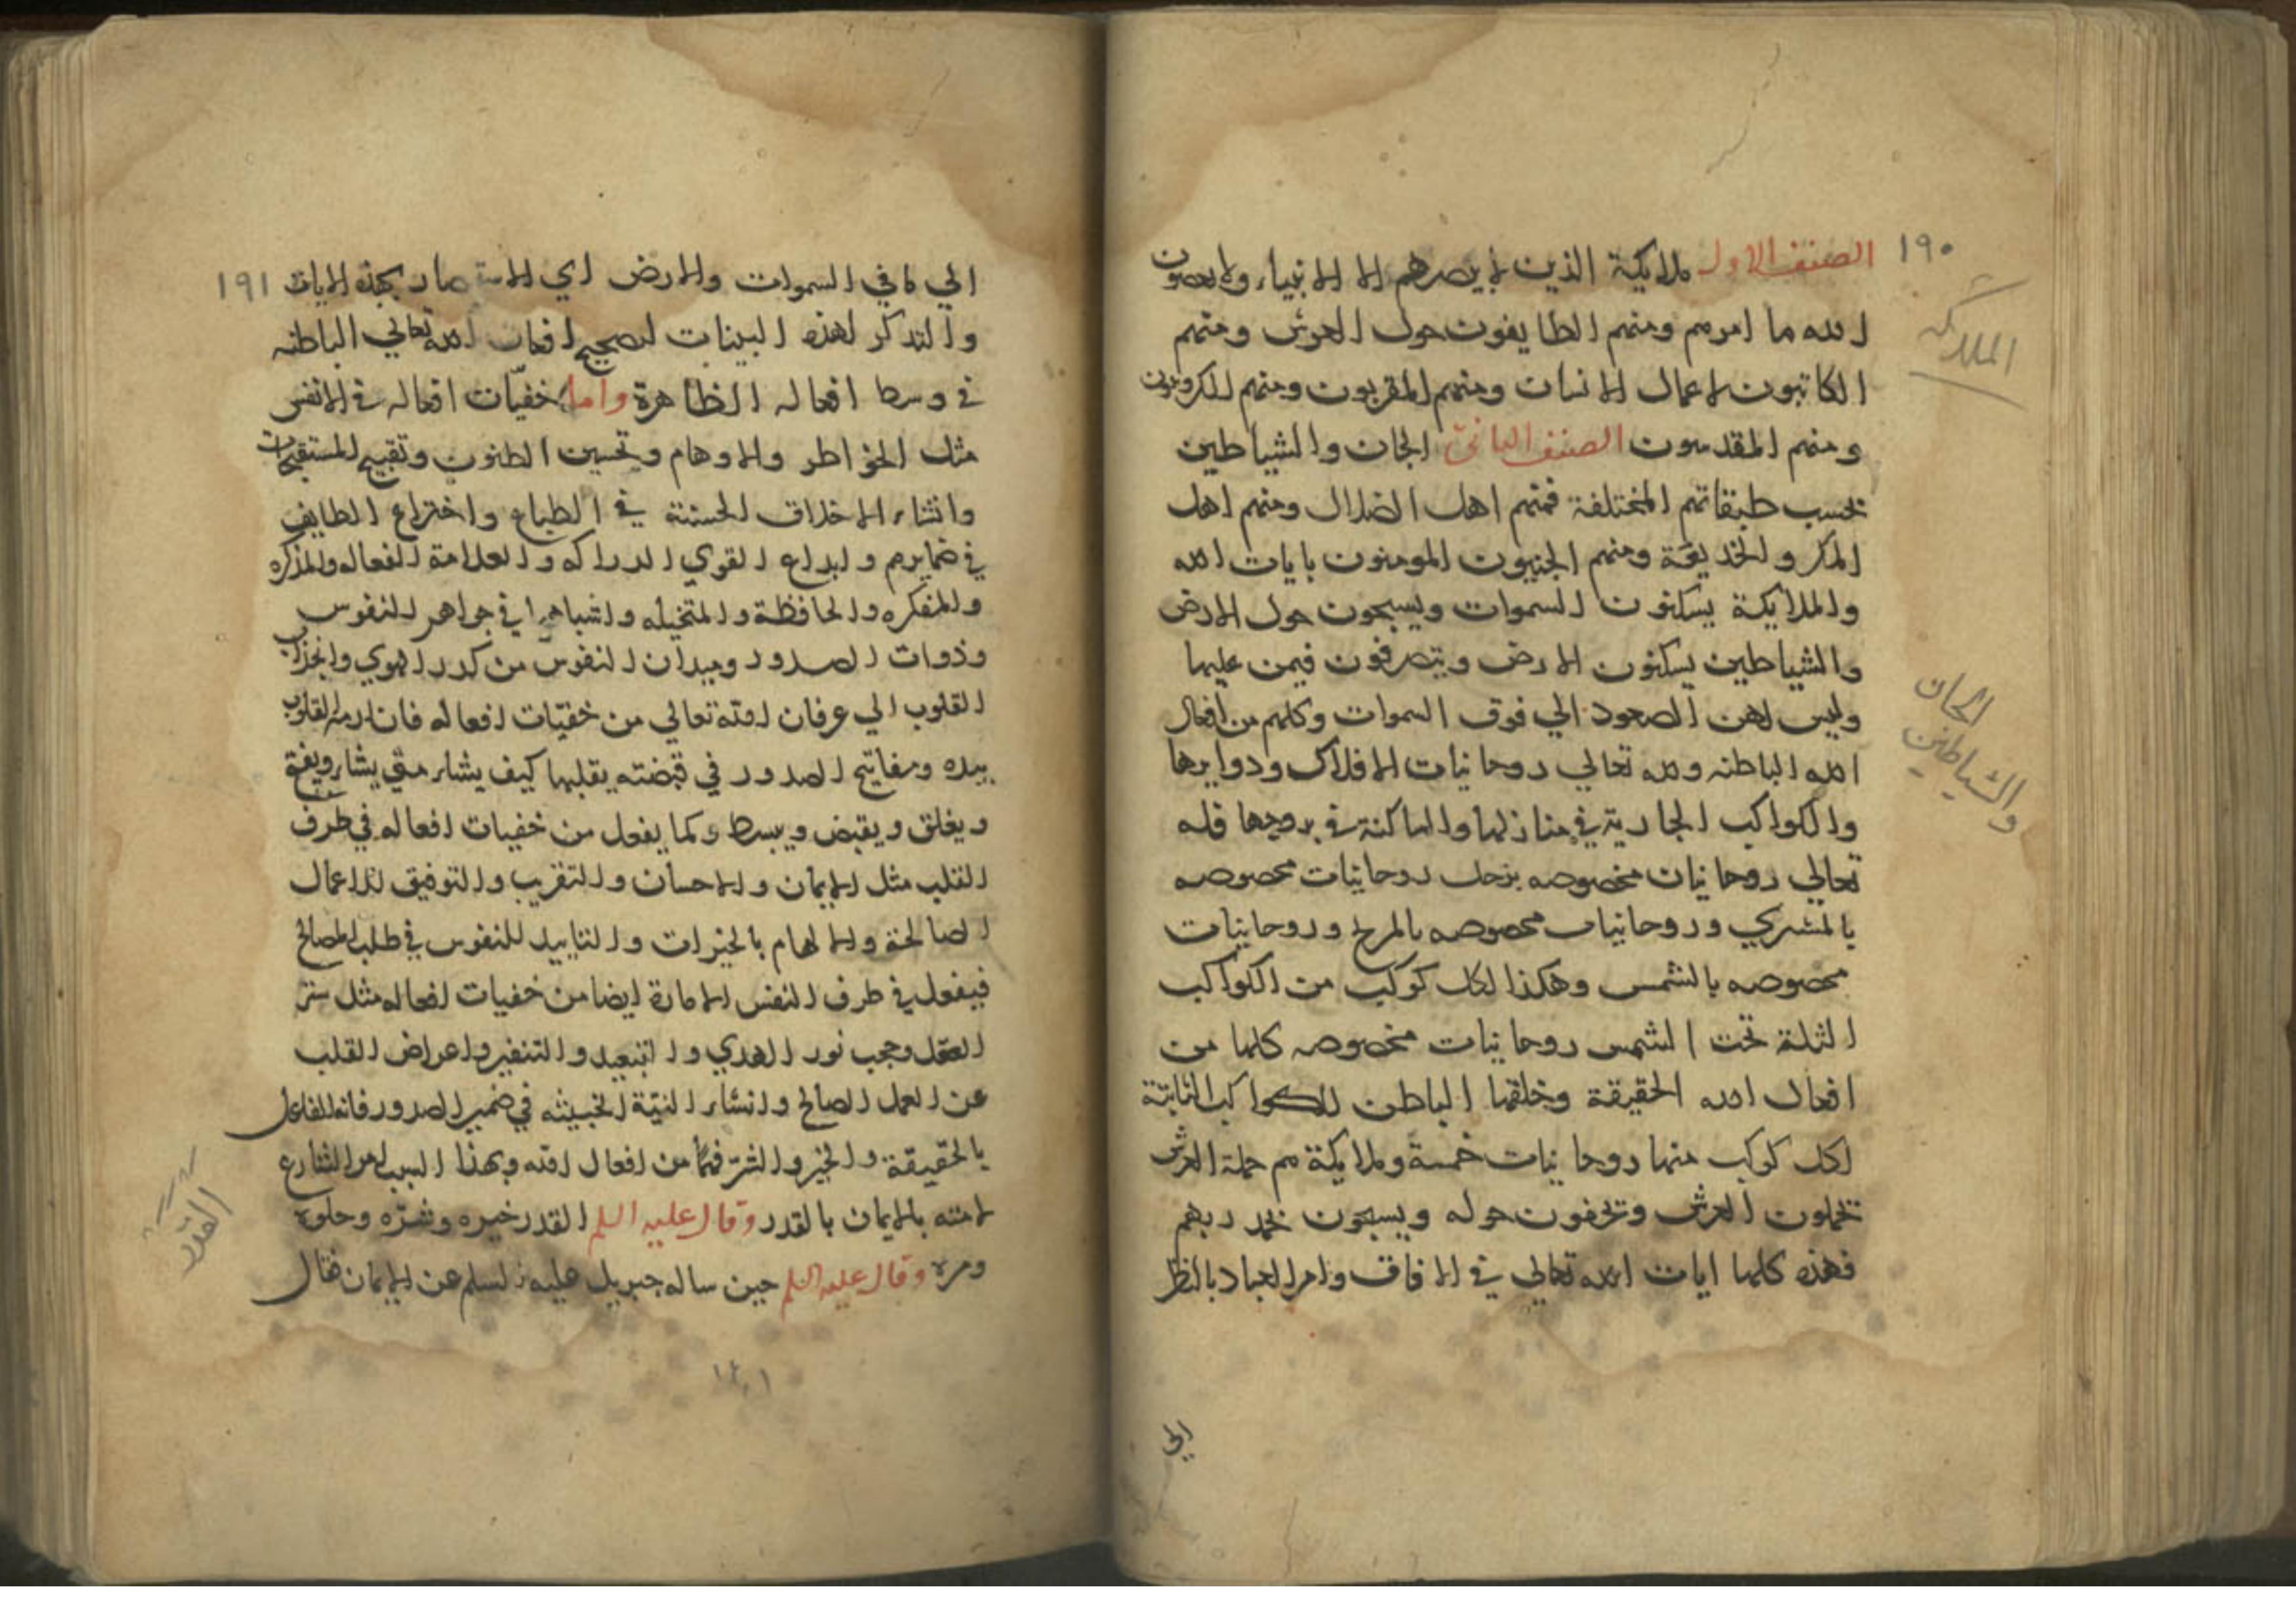 ١٩٠
الصنف الاول ملايكة الذين لا يبصرهم الا الانبياء ولا يعصون
الله ما امرهم ومنهم الطايفون حول العرش ومنهم
الكاتبون لاعمال الانسان ومنهم المقربون ومنهم الكروبيون
ومنهم المقدسون الصنف الثاني الجان والشياطين
بحسب طبقاتهم المختلفة فمنهم اهل الضلال ومنهم اهل
المكر والخديعة ومنهم الجنيون المومنون بايات الله
والملايكة يسكنون السموات ويسبحون حول الارض
والشياطين يسكنون الارض ويتصرفون فيمن عليها
وليس لهن الصعود الي فوق السموات وكلهم من افعال
الله الباطنه ولله تعالي روحانيات الافلاك ودوايرها
والكواكب الجارية في منازلها والساكنة في بروجها فله
تعالي روحانيات مخصوصه بزحل روحانيات مخصوصه
بالمشتري وروحانيات مخصوصه بالمريخ وروحانيات
مخصوصه بالشمس وهكذا لكل كوكب من الكواكب
الثلثة تحت الشمس روحانيات مخصوصه كلها من
افعال الله الحقيقة وخلقها الباطن للكواكب الثابتة
لكل كوكب منها روحانيات خمسة وملايكة هم حملة العرش
يحملون العرش ويحفون حوله ويسبحون بحمد ربهم
فهذه كلها ايات الله تعالي في الافاق وامر العباد بالنظر
الي
الملائكة
الجان
والشياطين
١٩١
الي ما في السموات والارض اي بهذه الايات
والتذكر لهذه البينات لصحيح افعال الله تعالي الباطنه
في وسط افعاله الظاهرة واما خفيّات افعاله في الانفس
مثل الخواطر والاوهام وتحسين الظنون وتقبيح المستقبحات
وانشاء الاخلاق الحسنة في الطباع واختراع الطايف
في ضمايرهم وابداع القوي الدراكه والعلامة الفعاله والمذكره
والمفكره والحافظة والمتخيله واشباهها في جواهر النفوس
وذوات الصدور وميدان النفوس من كدر الهوي وانجذاب
القلوب الي عرفان الله تعالي من خفيّات افعاله فان ازمة القلوب
بيده ومفاتيح الصدور في قبضته يقلبها كيف يشاء متي يشاء ويفتح
ويغلق ويقبض ويبسط وكما يفعل من خفيات افعاله في طرف
القلب مثل الايمان والاحسان والتقريب والتوفيق للاعمال
الصالحة والالهام بالخيرات والتاييد للنفوس في طلب المصالح
فيفعل في طرف النفس الامارة ايضا من خفيات افعاله مثل ستر
العقل وحجب نور الهدي والتبعيد والتنفير واعراض القلب
عن العمل الصالح وانشاء النيّة الخبيثه في ضمير الصدور فانه الفاعل
بالحقيقة والخير والشرّ فهما من افعال الله وبهذا السبب امر الشارع
لامته بالايمان بالقدر وقال عليه السلم القدر خيره وشرّه وحلوه
ومره وقال عليه السلم حين ساله جبريل عليه السلم عن الايمان فقال
القدر